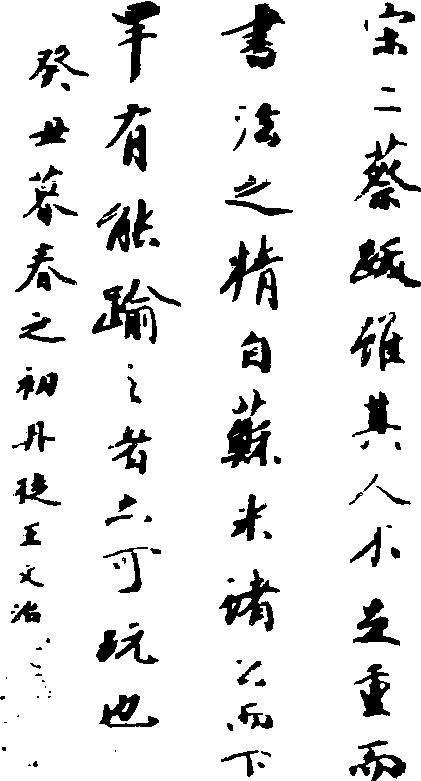 宋二蔡跋雖其人不足重而
書法之精自蘇米諸公而下
罕有能踰之者亦可玩也
癸丑暮春之初丹徒王文治